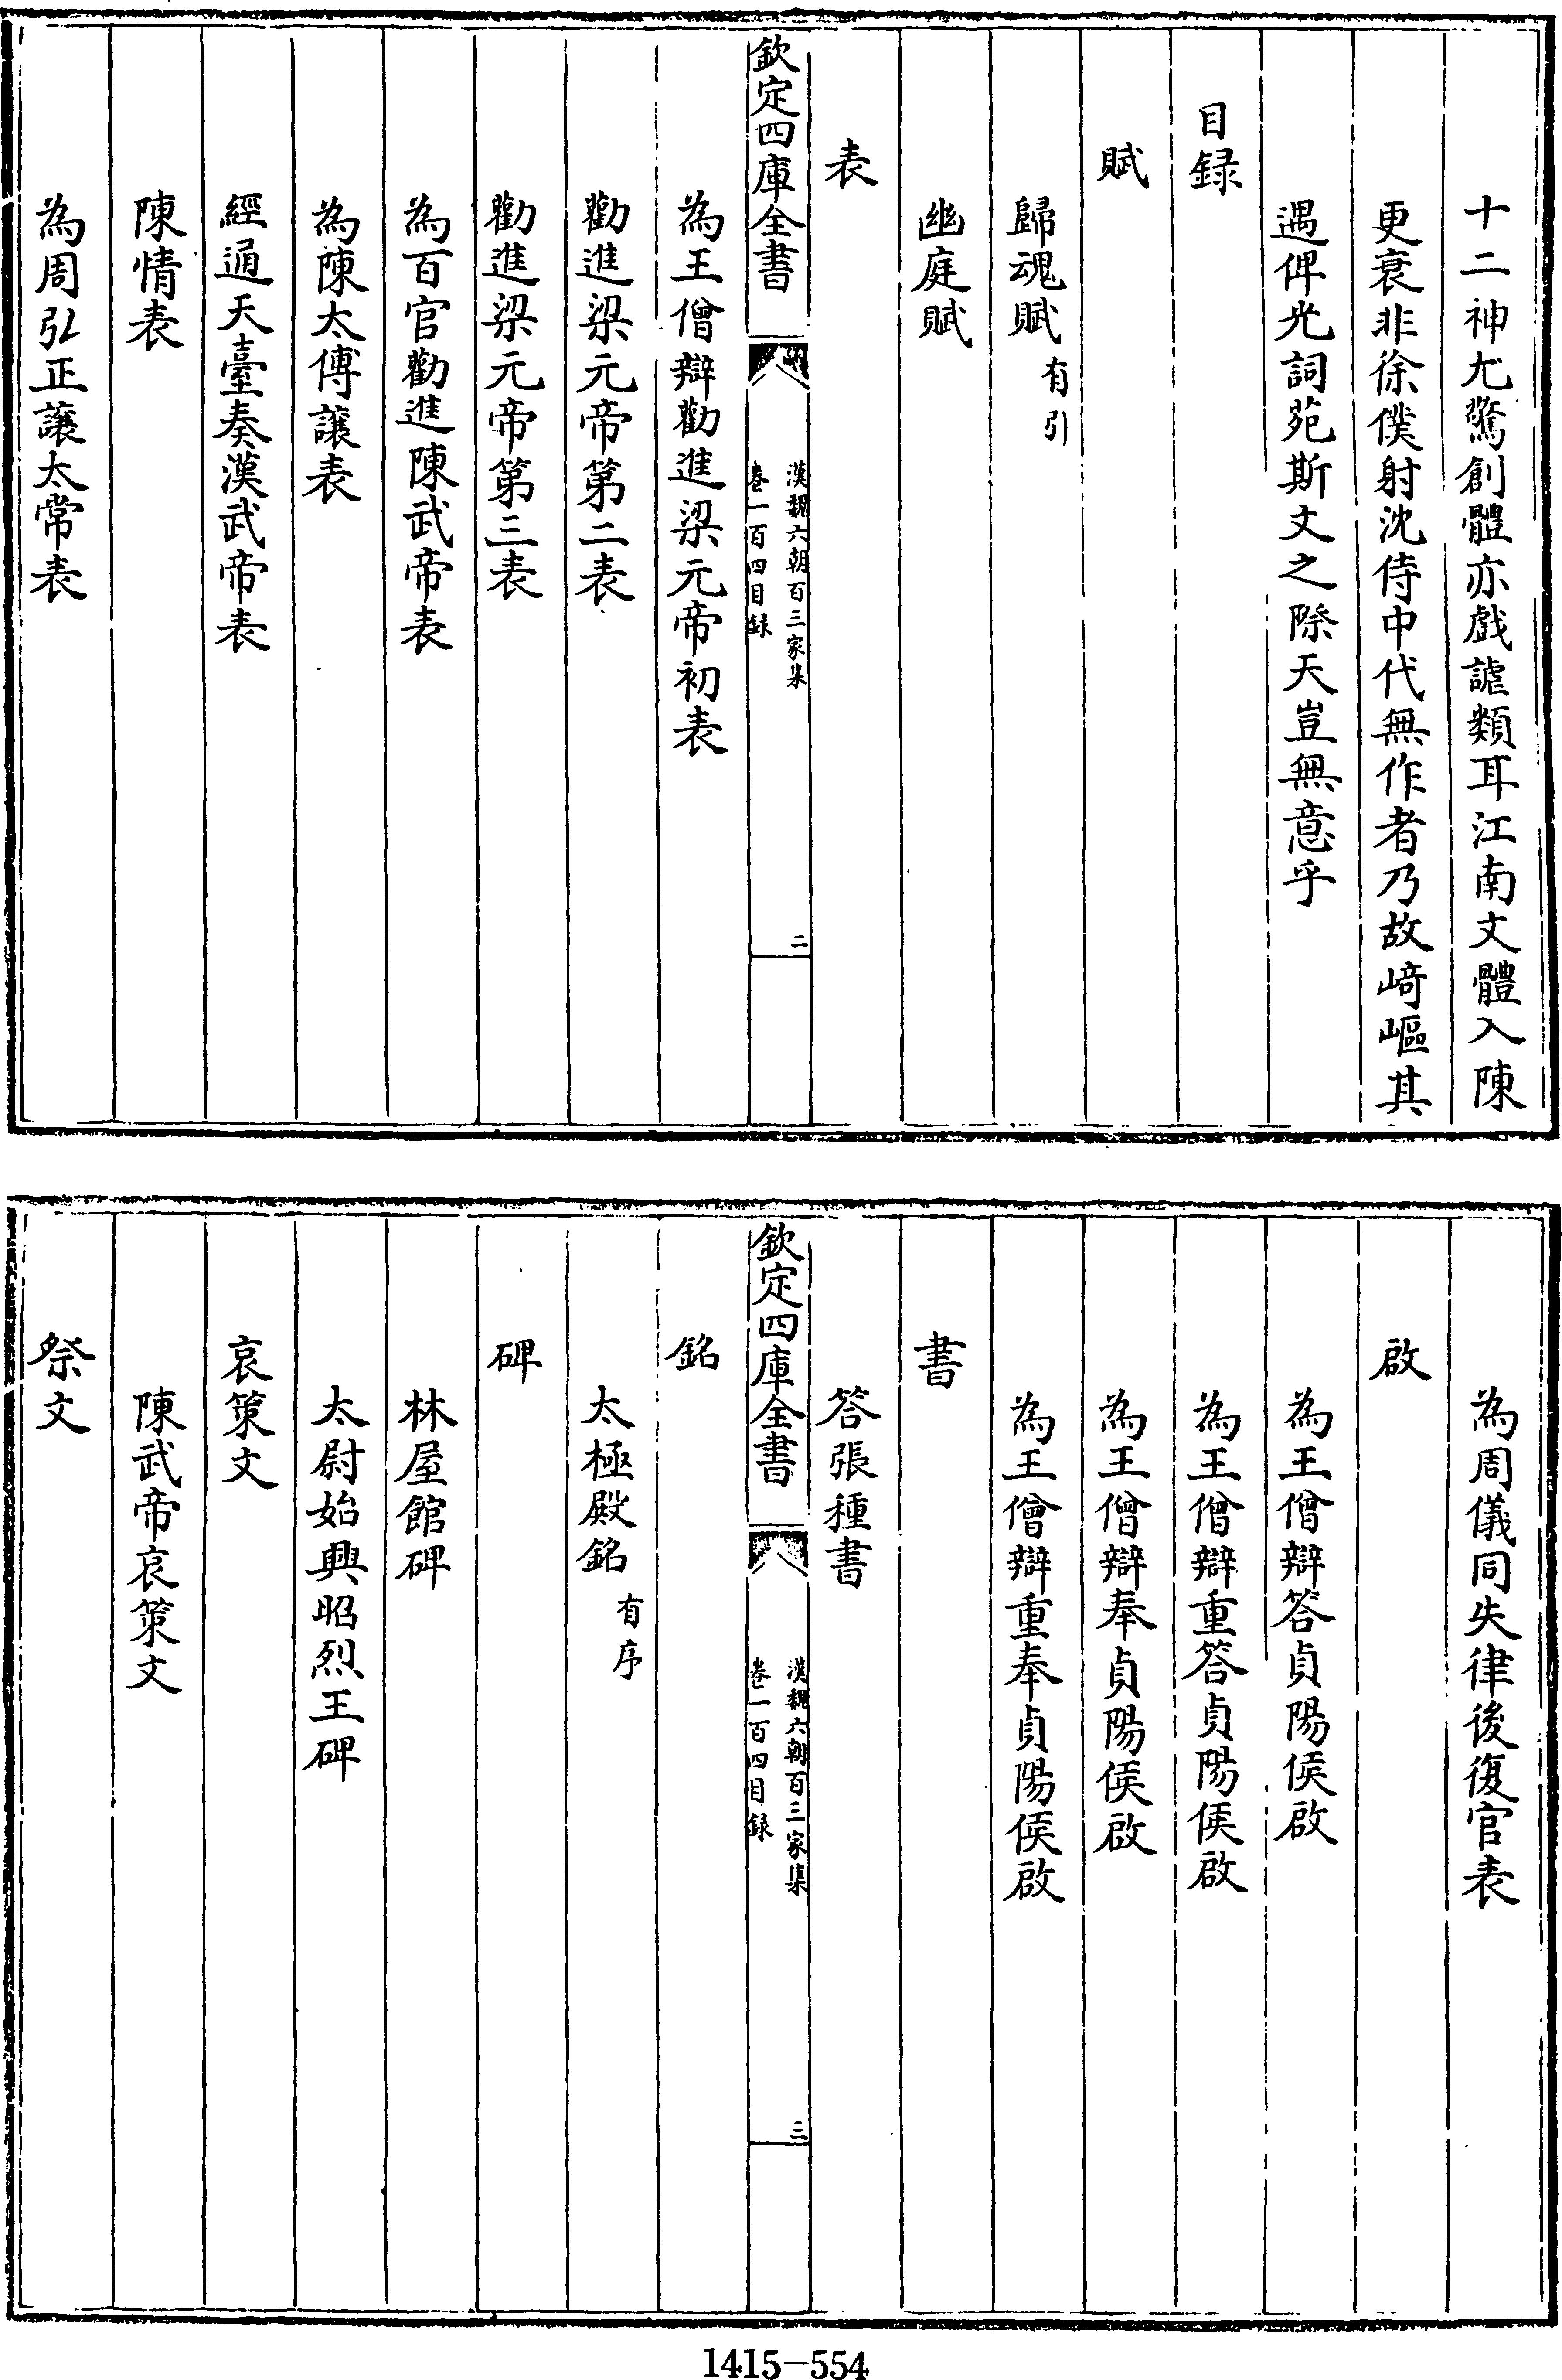 十二神尤驚創體亦戲謔類耳江南文體入陳
更衰非徐僕射沈侍中代無作者乃故﨑嶇其
遇俾光詞苑斯文之際天豈無意乎
目録
賦
歸魂賦 有引
幽庭賦
表
欽定四庫全書
漢魏六朝百三家集
卷一百四目録
二
為王僧辯勸進梁元帝初表
勸進梁元帝第二表
勸進梁元帝第三表
為百官勸進陳武帝表
為陳太傅讓表
經通天臺奏漢武帝表
陳情表
為周弘正讓太常表
為周儀同失律後復官表
啟
為王僧辯答貞陽侯啟
為王僧辯重答貞陽侯啟
為王僧辯奉貞陽侯啟
為王僧辯重奉貞陽侯啟
書
答張種書
欽定四庫全書
漢魏六朝百三家集
卷一百四目録
三
銘
太極殿銘 有序
碑
林屋館碑
太尉始興昭烈王碑
哀策文
陳武帝哀策文
祭文
1415-554